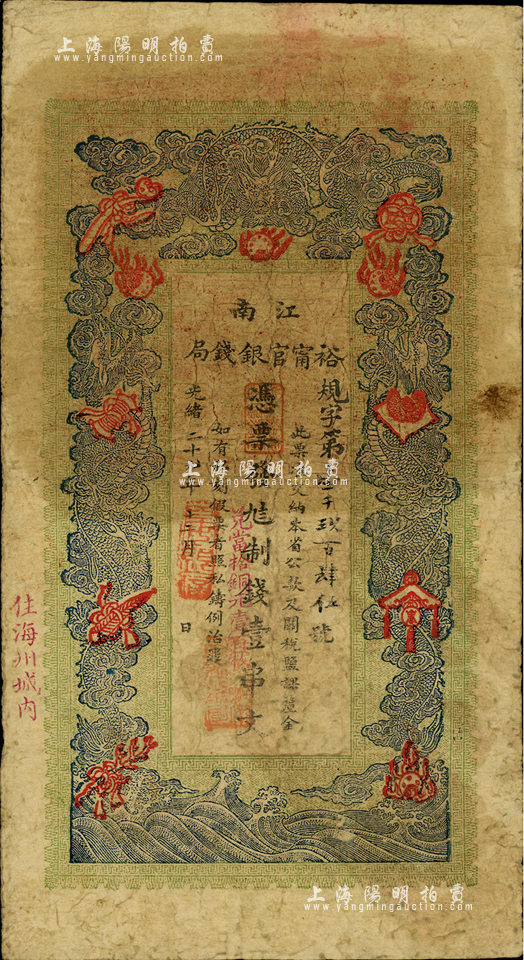 上海陽明拍賣
www.yangmingauction.com
江南
裕甯官銀錢局
規字第 千玖百肆伍號
此票 交納本省公款及關稅鹽課釐金
憑票 尅制錢壹串文
如有 假票者照私鑄例治罪
光緒二十 年 二月 日
兌當拾銅元壹百枚
住海州城內
上海陽明拍賣
www.yangmingauction.com
上海陽明拍賣
www.yangmingauction.com